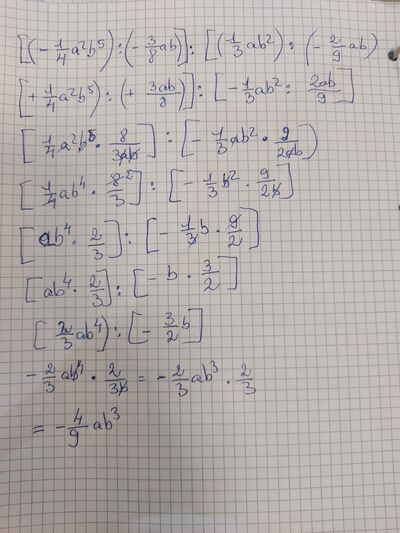 [(-1/4 a²b⁵) : (-3/8 ab)] : [(1/3 ab²) : (-2/9 ab)
[+1/4 a²b⁵) : (+ 3ab/8)] : [-1/3 ab² : 2ab/9]
[1/4 a²b⁵ · 8/3ab] : [-1/3 ab² · 9/2ab)
[1/4 ab⁴ · 8 2/3] : [-1/3 b² · 9/2b]
[ab⁴ · 2/3] : [-1/3 b · 9/2]
[ab⁴ · 2/3] : [-b · 3/2]
[2/3 ab⁴) : [-3/2 b]
-2/3 ab⁴ · 2/3b = -2/3 ab³ · 2/3
= -4/9 ab³